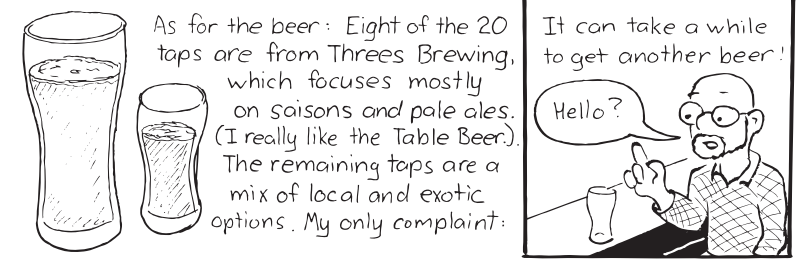 As for the beer: Eight of the 20
taps are from Threes Brewing,
which focuses mostly
on saisons and pale ales.
(I really like the Table Beer.).
The remaining taps are a
mix of local and exotic
options. My only complaint:
It can take a while
to get another beer!
Hello?